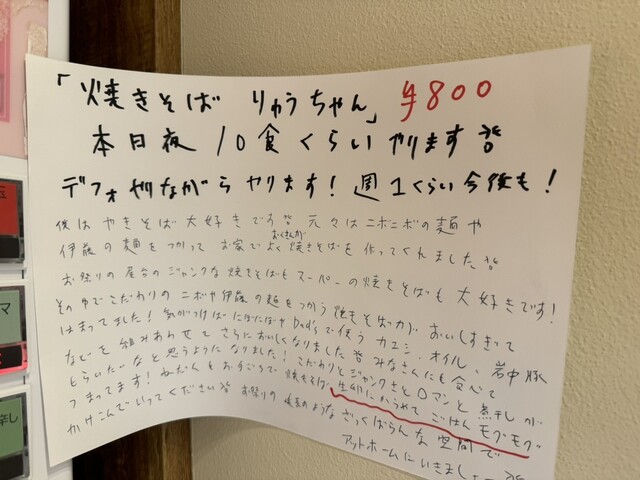 「焼きそば りゅうちゃん」 ¥800
本日夜 10食くらいやります
デフォやりながらやります! 週1くらい今後も!
僕はやきそば大好きです 元々はニボニボの麺や
おくさんが
伊藤の麺をつかってお家でよく焼きそばを作ってくれました
お祭りの屋台のジャンクな焼きそばもスーパーの焼きそばも大好きです!
その中でこだわりのニボや伊藤の麺をつかう焼きそばがおいしすぎて
はまってました! 気がつけばにぼにぼやDad'sで使うカエシ、オイル、岩中豚
などを組みあわせてさらにおいしくなりました みなさんにも食べて
もらいたいなと思うようになりました! こだわりとジャンクさとロマンと煮干しが
つまってます! 焼きそば 生卵にからめて ごはん モグモグ
かけこんでいってください お祭りの ような ざっくばらんな空間で
アットホームにいきましょー